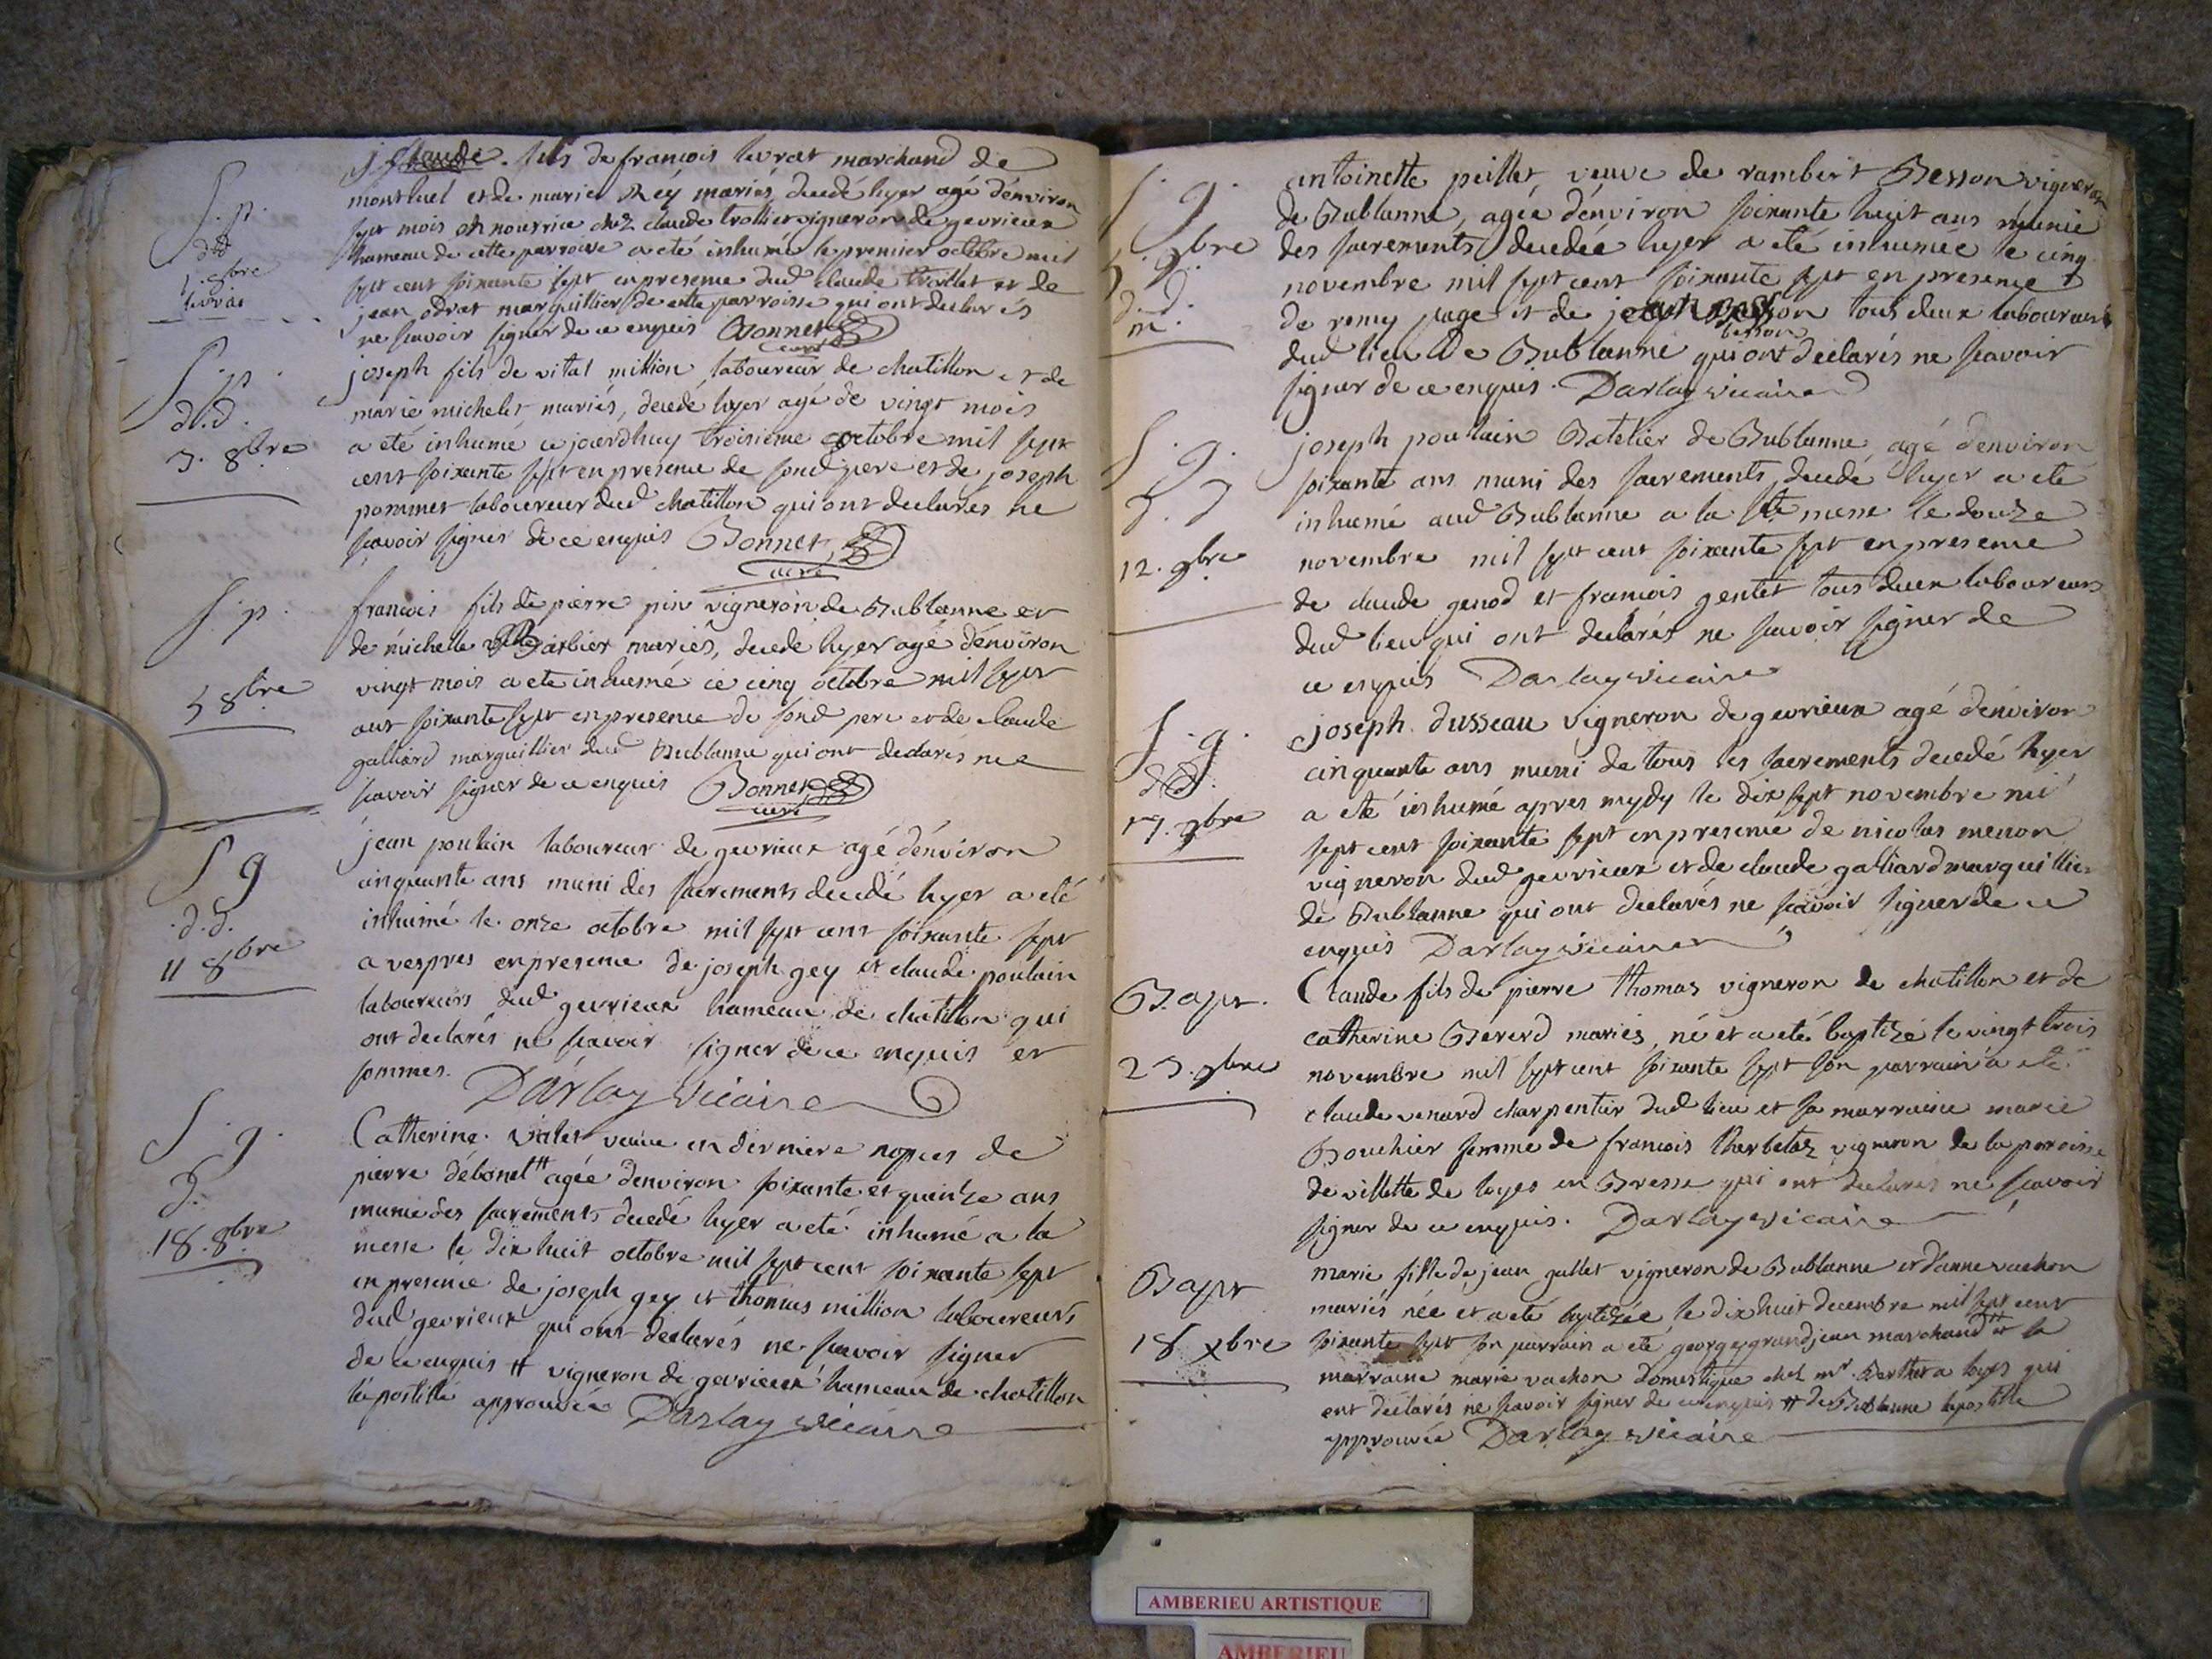 S. p.
1. 8bre
levrat
fils de francois levrat marchand de
montluel et de marie Rey mariés, decedé hyer agé d'environ
sept mois en nourrice chez claude trolliet vigneron de gevrieux
hameau de cette parroisse a eté inhumé le premier octobre mil
sept cent soixante sept en presence dud claude trolliet et de
jean odrat marguillier de cette parroisse qui ont declarés
ne scavoir signer de ce enquis Bonnet
curé
S. p.
d. d.
3. 8bre
joseph fils de vital million laboureur de chatillon et de
marie michelet mariés, decedé hyer agé de vingt mois
a eté inhumé ce jourdhuy troisieme octobre mil sept
cent soixante sept en presence de soud pere et de joseph
pommet laboureur dud chatillon qui ont declares ne
scavoir signer de ce enquis Bonnet
curé
S. p.
5 8bre
francois fils de pierre pin vigneron de Bublanne et
de michelle Barbier mariés, decede hyer agé d'environ
vingt mois a ete inhumé ce cinq octobre mil sept
cent soixante sept en presence de soud pere et de claude
galliard marguillier dud Bublanne qui ont declarés ne
scavoir signer de ce enquis Bonnet
curé
S g
d. d.
11 8bre
jean poulain laboureur de gevrieux agé d'environ
cinquante ans muni des sacrements decedé hyer a eté
inhumé le onze octobre mil sept cent soixante sept
a vespres en presence de joseph gey et claude poulain
laboureurs dud gevrieux hameau de chatillon qui
ont declarés ne scavoir signer de ce enquis et
sommes.
Darlay vicaire
S. g.
d.
18. 8bre
Catherine veuve en derniere nopces de
pierre débonet # agée denviron soixante et quinze ans
munie des sacrements decedé hyer a eté inhumé a la
messe le dix huit octobre mil sept cent soixante sept
en presence de joseph gey et thomas million laboureurs
dud gevrieux qui ont declarés ne scavoir signer
de ce enquis # vigneron de gevrieux hameau de chatillon
l'apostille approuvée Darlay vicaire
S. g.
5. 9bre
d. d.
m.
antoinette peillet, veuve de rambert Besson vigneron
de Bublanne, agée d'environ soixante huit ans munie
des sacrements decedée hyer a eté inhumée le cinq
novembre mil sept cent soixante sept en presence
de remy page et de joseph besson tous deux laboureurs
besson
dud lieu de Bublanne qui ont declarés ne scavoir
signer de ce enquis. Darlay vicaire
S. g.
d. d
12. 9bre
joseph poulain Batelier de Bublanne, agé d'environ
soixante ans muni des sacrements, decedé hyer a eté
inhumé aud Bublanne a la ste messe le douze
novembre mil sept cent soixante sept en presence
de claude genod et francois gentet tous deux laboureurs
dud lieu qui ont declarés ne scavoir signer de
ce enquis Darlay vicaire
S. g.
17. 9bre
joseph dusseau vigneron de gevrieux agé d'environ
cinquante ans muni de tous les sacrements decedé hyer
a eté inhumé apres mydy le dix sept novembre mil
sept cent soixante sept en presence de nicolas menon
vigneron dud gevrieux et de claude galliard marguillier
de Bublanne qui ont declarés ne scavoir signer de ce
enquis Darlay vicaire
Bapt.
23. 9bre
Claude fils de pierre thomas vigneron de chatillon et de
catherine Bererd mariés, né et a eté baptizé le vingt trois
novembre mil sept cent soixante sept son parrain a eté
claude venard charpentier dud lieu et sa marraine marie
Bouchier femme de francois vigneron de la parroisse
de villette de loyes en Bresse qui ont declarés ne scavoir
signer de ce enquis. Darlay vicaire
Bapt
18 xbre
marie fille de jean gallet vigneron de Bublanne et d'anne vachon
mariés née et a eté baptizée le dix huit decembre mil sept cent
soixante sept son parrain a eté george grandjean marchand # et sa
marraine marie vachon domestique chez mr. Berthet a loyes qui
ont declarés ne scavoir signer de ce enquis # de Bublanne lapostille
approuvée Darlay vicaire
AMBERIEU ARTISTIQUE
AMBERIEU